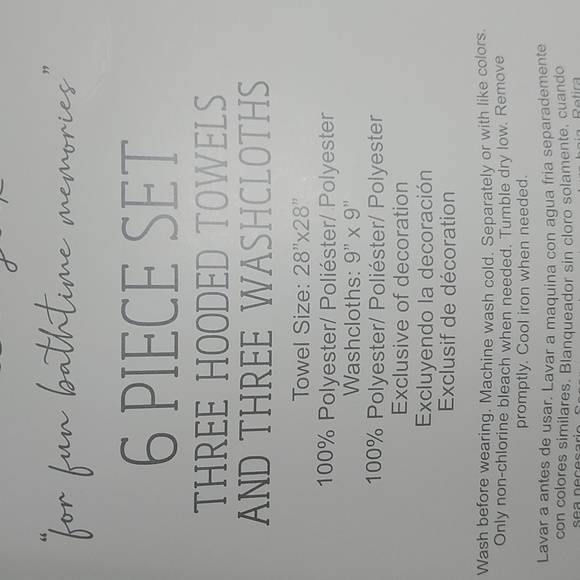 “for fun bathtime memories”
6 PIECE SET
THREE HOODED TOWELS
AND THREE WASHCLOTHS
Towel Size: 28”x28”
100% Polyester/ Poliéster/ Polyester
Washcloths: 9” x 9”
100% Polyester/ Poliéster/ Polyester
Exclusive of decoration
Excluyendo la decoración
Exclusif de décoration
Wash before wearing. Machine wash cold. Separately or with like colors.
Only non-chlorine bleach when needed. Tumble dry low. Remove
promptly. Cool iron when needed.
Lavar a antes de usar. Lavar a maquina con agua fria separademente
con colores similares. Blanqueador sin cloro solamente, cuando
sea necesario.